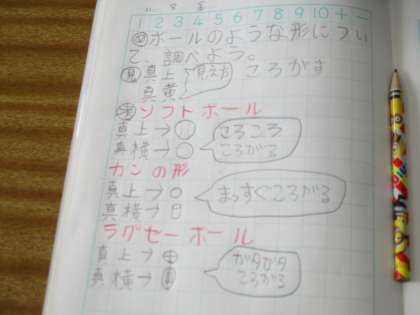 1 2 3 4 5 6 7 8 9 10 + −
め ボールのような形につい
て、調べよう。
見 真上 見え方 ころがす
真黄
ソフトボール
真上→○ ころころ
真横→○ ころがる
カンの形
真上→○ まっすぐころがる
真横→
ラグセーボール
真上→ ガタガタ
真横→ ころがる